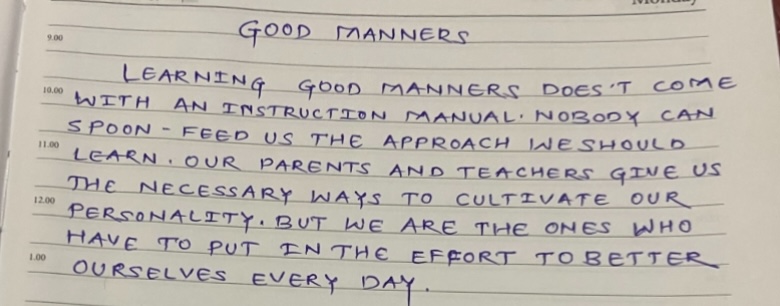 GOOD MANNERS
9.00
LEARNING GOOD MANNERS DOES'T COME
10.00
WITH AN INSTRUCTION MANUAL. NOBODY CAN
SPOON-FEED US THE APPROACH WE SHOULD
11.00
LEARN. OUR PARENTS AND TEACHERS GIVE US
THE NECESSARY WAYS TO CULTIVATE OUR
12.00
PERSONALITY. BUT WE ARE THE ONES WHO
HAVE TO PUT IN THE EFFORT TO BETTER
1.00
OURSELVES EVERY DAY.